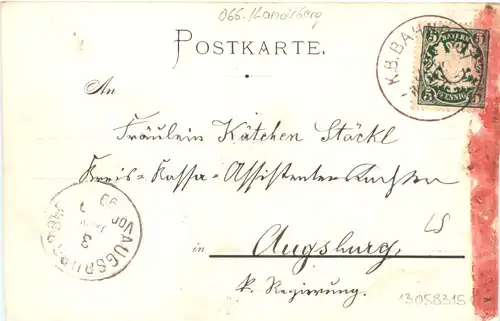 066. Landsberg
POSTKARTE.
K.B.BAHN
BAYERN
5 5
5 5
PFENNIG
An
Fräulein Kätchen Stöckl
Kreis-Kassa-Assistenten
in Augsburg.
k. Regierung.
AUGSBURG
VOR
3
99
LS
13058315